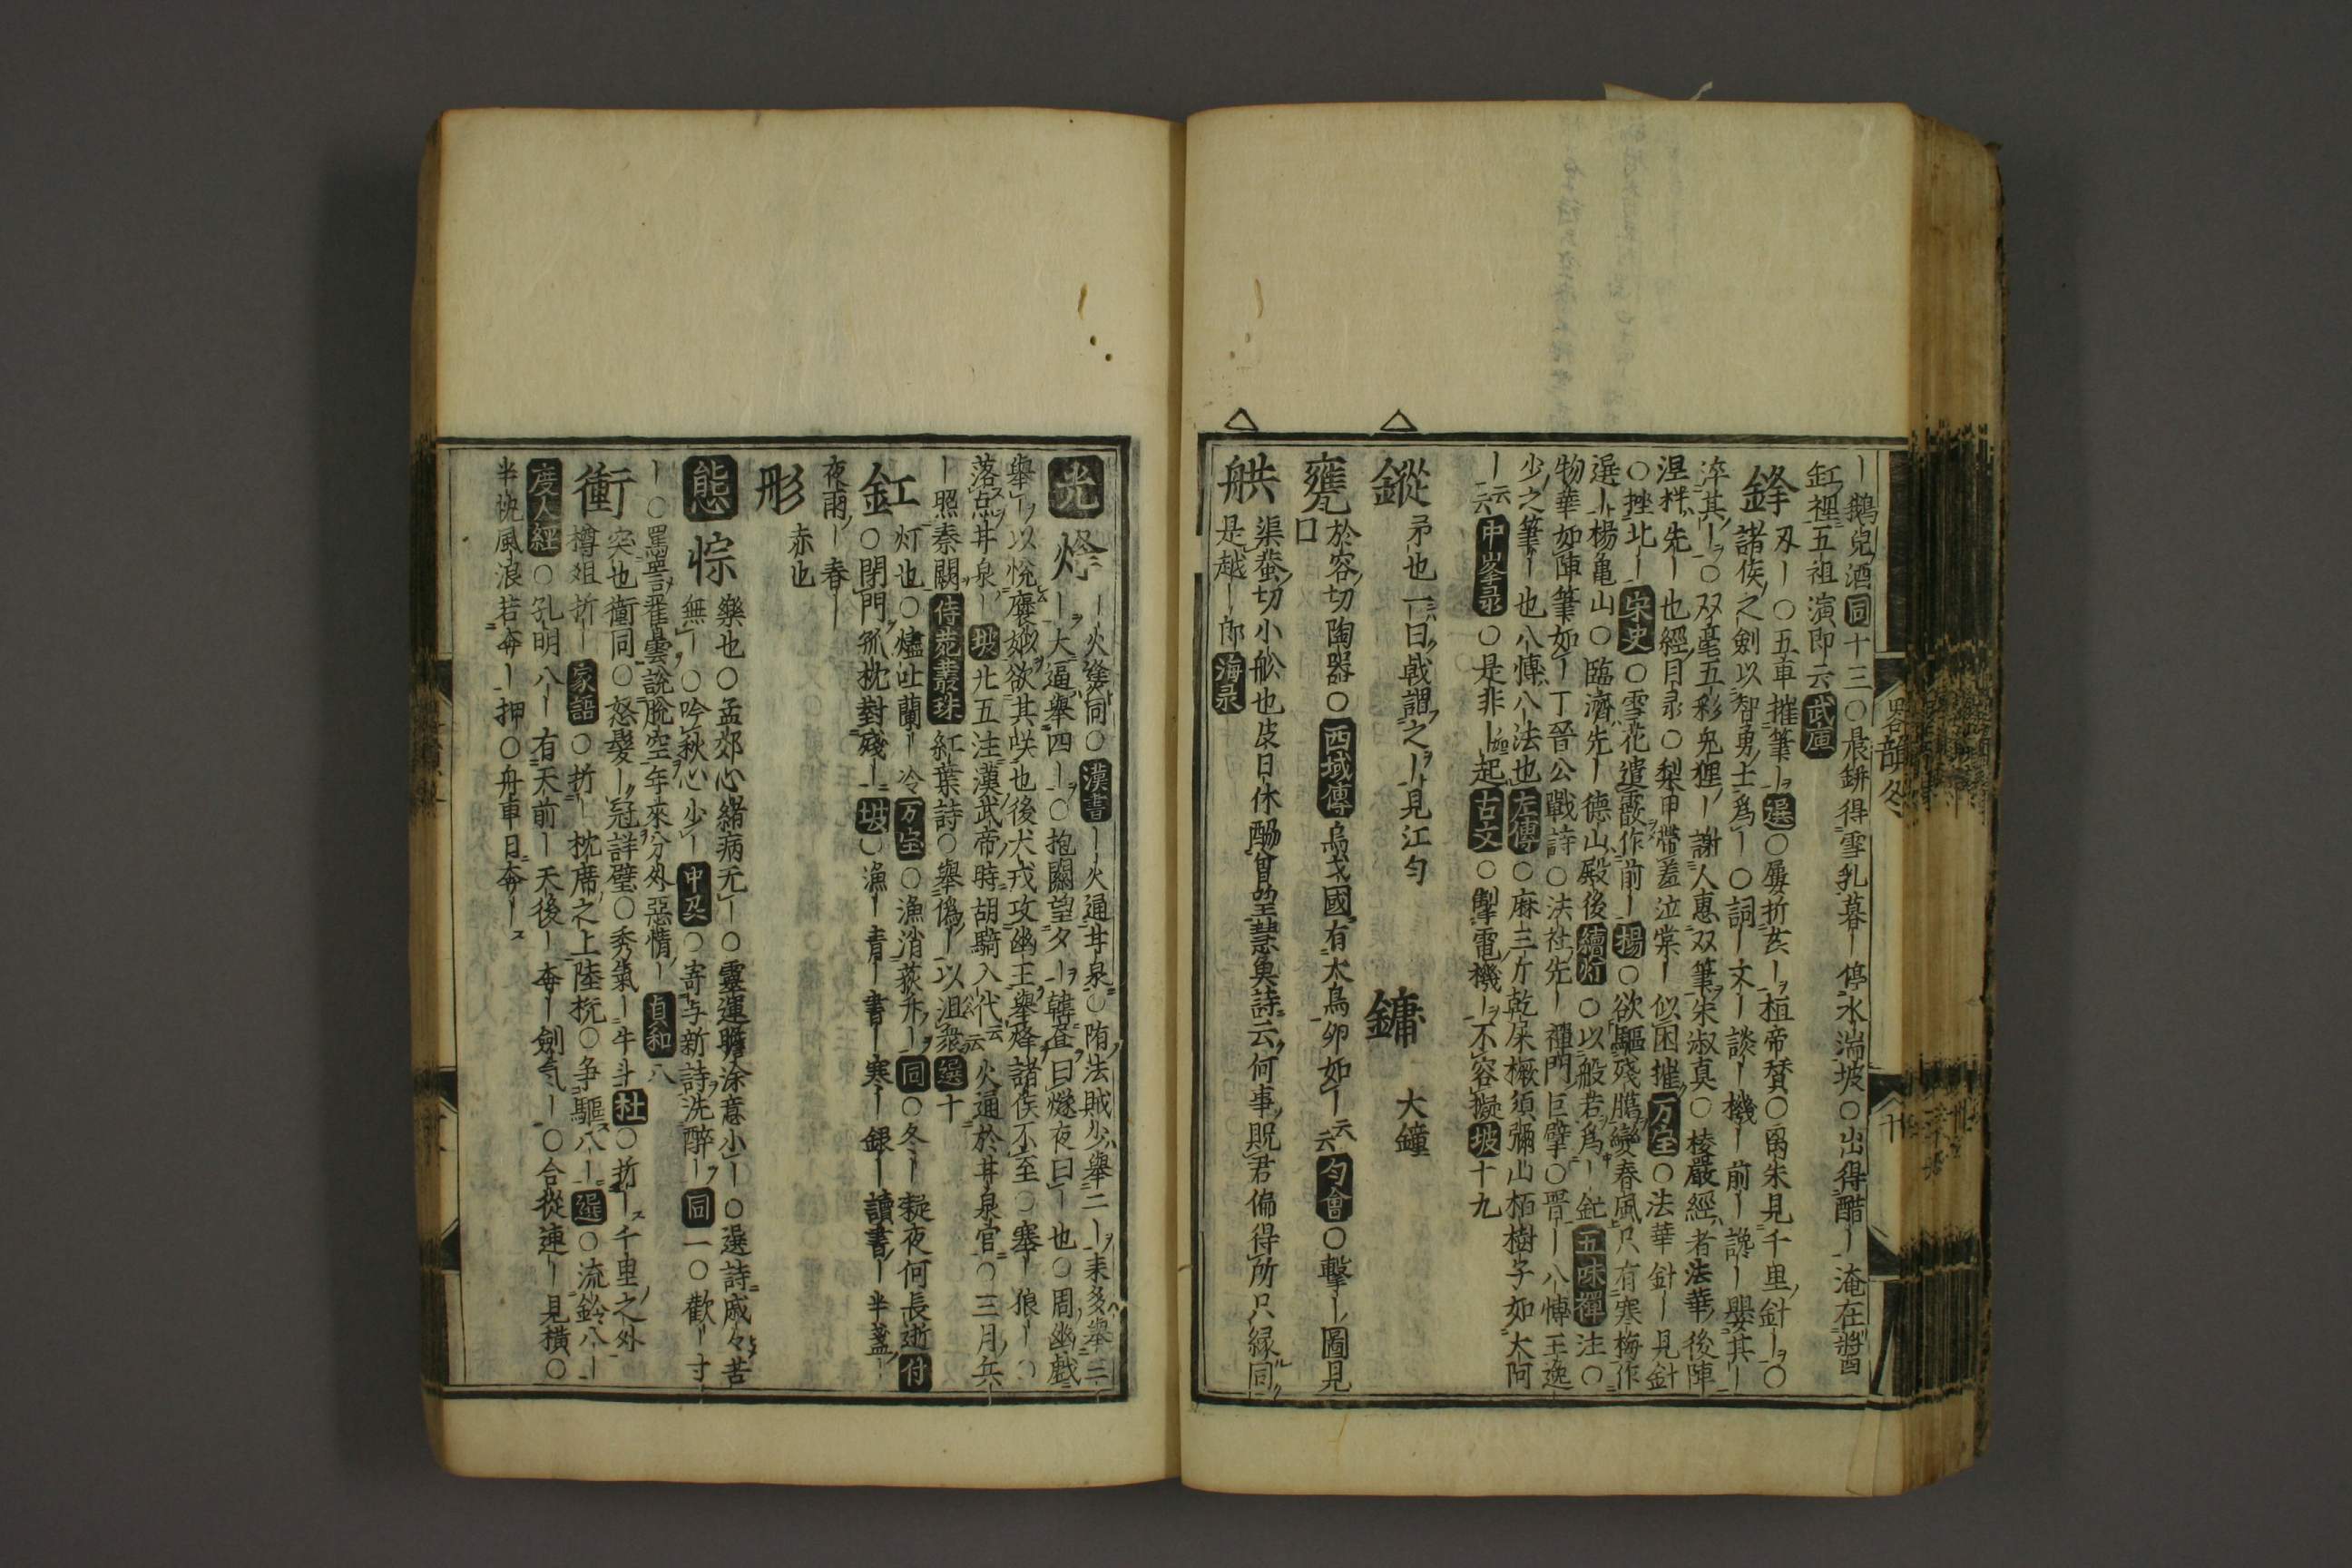 丨鵝兒酒同十三○晨缾得雪乳暮丨停氷湍坡○出得醋丨淹在醬
缸裡五祖演即云武庫
鋒刄丨○五車摧筆丨選○屢折亥丨桓帝賛○尋朱見千里針丨○
諸侯之劍以智勇士爲丨○詞丨文丨談丨機丨前丨讒丨嬰其丨
淬其丨○双毫五彩兎狸丨謝人惠双筆朱淑真○棱嚴經者法華後陣
涅槃先丨也經目录○梨甲帶羞泣棠丨似困摧万宝○法華針丨見針
○挫北丨宋史○雪花遣霰作前丨楊○欲驅殘臘變春風只有寒梅作
選丨楊亀山○臨濟先丨德山殿後續灯○以般若爲丨釯五味禪注○
物華如陣筆如丨丁晉公戰詩○法社先丨禪門巨擘○詈丨八愽王逸
少之筆丨也八愽八法也左傳○麻三斤乾屎橛須彌山栢樹子如大阿
丨云云中峯录○是非丨起古文○掣電機丨不容擬坡十九
鏦矛也一曰戟謂之丨見江勻
鏞大鐘
甕於容切陶器○西域傳烏弋國有大鳥卵如丨云云勻會○擊丨圖見
口
舼渠蚕切小舩也皮日休酧曾望慧魚詩云何事貺君偏得所只緣同
是越丨郎海录
畧韻冬
光烽丨火㷭同○漢書丨丨火通井泉○隋法賊少舉二丨来多舉三
丨大逼舉四丨○抱關望夕丨韓㝎曰燧夜曰丨也○周幽戲
舉丨以悅褒姒欲其咲也後犬戎攻幽王舉烽諸侯不至○塞丨狼丨○
落点井泉丨坡廾五注漢武帝時胡騎入代云云火通於井泉宮○三月兵
丨照秦關侍苑叢珠紅葉詩○舉僞丨以沮衆選十
釭灯也○燼吐蘭丨冷万宝○漁消荻外丨同○冬丨凝夜何長逝付
○閉門孤枕對殘丨坡○漁丨青丨書丨寒丨銀丨讀書丨半盞丨
夜雨丨春丨
彤赤也
態悰樂也○孟郊心緒病无丨○靈運瞻涂意小丨○選詩戚々苦
無丨○吟秋心少丨中㕛○寄与新詩洗醉丨同一○歡丨寸
丨○罵詈瞿曇說脫空年來分外惡情丨貞和八
衝突也衝同○怒髮丨冠詳璧○秀氣丨牛斗杜○折丨千里之外
樽俎折丨家語○折丨枕席之上陸抗○争驅八丨選○流鈴八丨
度人經○孔明八丨有天前丨天後丨奔丨劍气丨○合從連丨見橫○
半帆風浪若奔丨押○舟車日奔丨